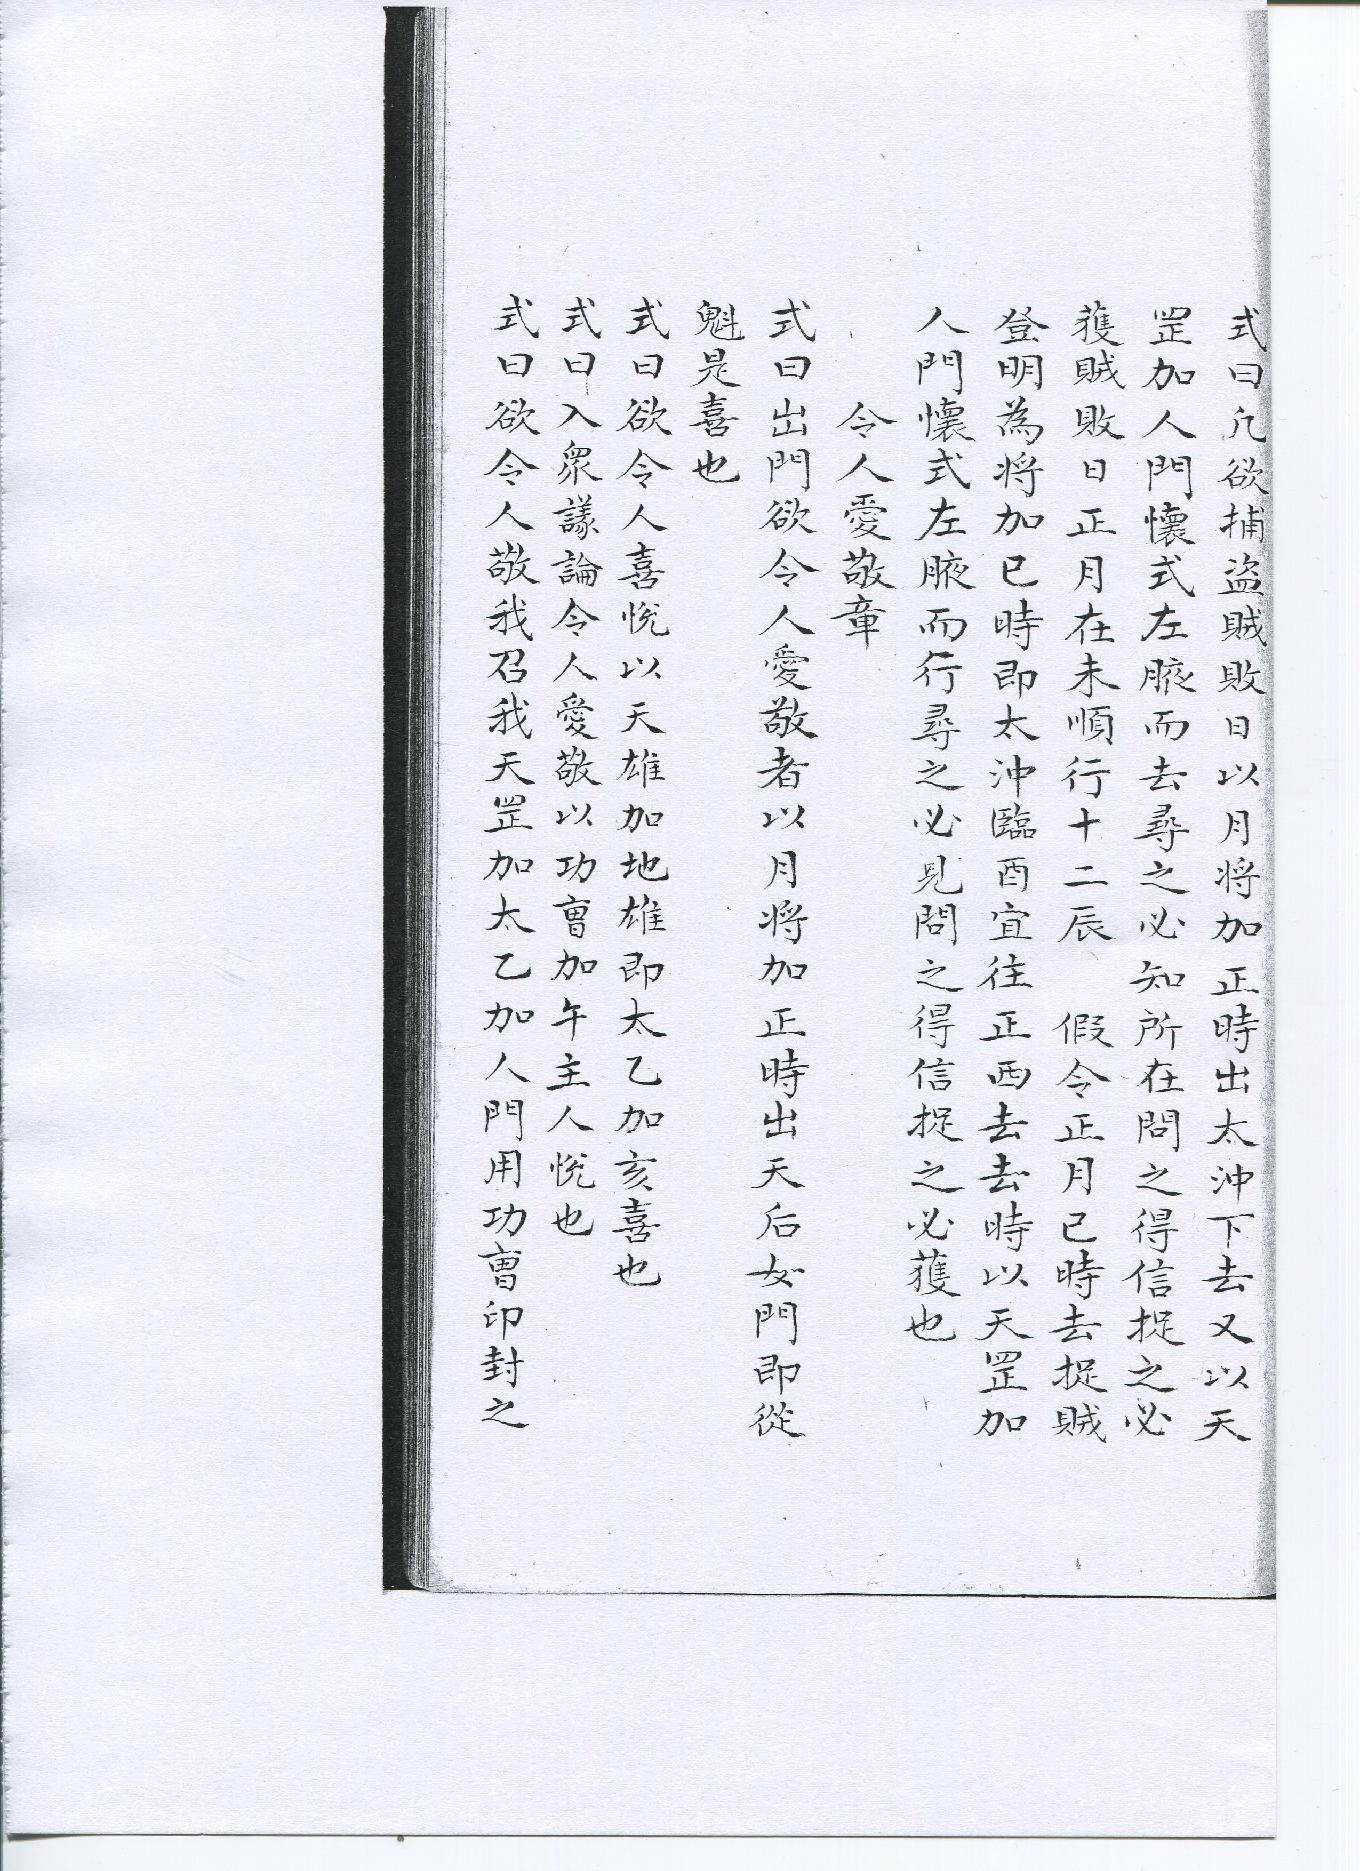 式曰凡欲捕盜賊敗日以月將加正時出太沖下去又以天
罡加人門懷式左腋而去尋之必知所在問之得信捉之必
獲賊敗日正月在未順行十二辰　假令正月巳時去捉賊
登明為將加巳時即太沖臨酉宜往正西去去時以天罡加
人門懷式左腋而行尋之必見問之得信捉之必獲也
令人愛敬章
式曰出門欲令人愛敬者以月將加正時出天后女門即從
魁是喜也
式曰欲令人喜悅以天雄加地雄即太乙加亥喜也
式曰入眾議論令人愛敬以功曹加午主人悅也
式曰欲令人敬我召我天罡加太乙加人門用功曹印封之